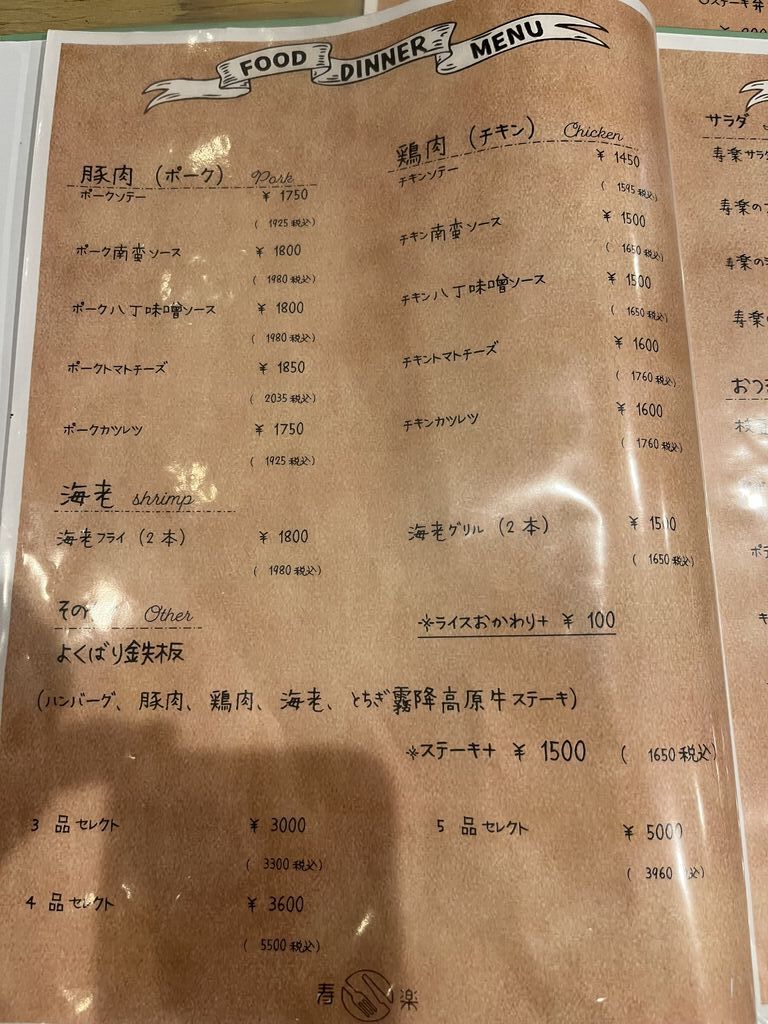 FOOD DINNER MENU
豚肉 (ポーク) Pork
ポークソテー ¥ 1750
( 1925 税込)
ポーク南蛮ソース ¥ 1800
( 1980 税込)
ポーク八丁味噌ソース ¥ 1800
( 1980 税込)
ポークトマトチーズ ¥ 1850
( 2035 税込)
ポークカツレツ ¥ 1750
( 1925 税込)
海老 shrimp
海老フライ (2 本) ¥ 1800
( 1980 税込)
鶏肉 (チキン) Chicken
チキンソテー ¥ 1450
( 1595 税込)
チキン南蛮ソース ¥ 1500
( 1650 税込)
チキン八丁味噌ソース ¥ 1500
( 1650 税込)
チキントマトチーズ ¥ 1600
( 1760 税込)
チキンカツレツ ¥ 1600
( 1760 税込)
海老グリル (2 本) ¥ 1500
( 1650 税込)
※ライスおかわり+ ¥ 100
その Other
よくばり鉄板
(ハンバーグ、豚肉、鶏肉、海老、とちぎ霧降高原牛ステーキ)
※ステーキ+ ¥ 1500 ( 1650 税込)
3 品セレクト ¥ 3000
( 3300 税込)
4 品セレクト ¥ 3600
( 5500 税込)
5 品セレクト ¥ 5000
( 3960 込)
寿 楽
サラダ
寿楽サラ
寿楽の
寿楽の
寿楽の
おつ
枝
ポテ